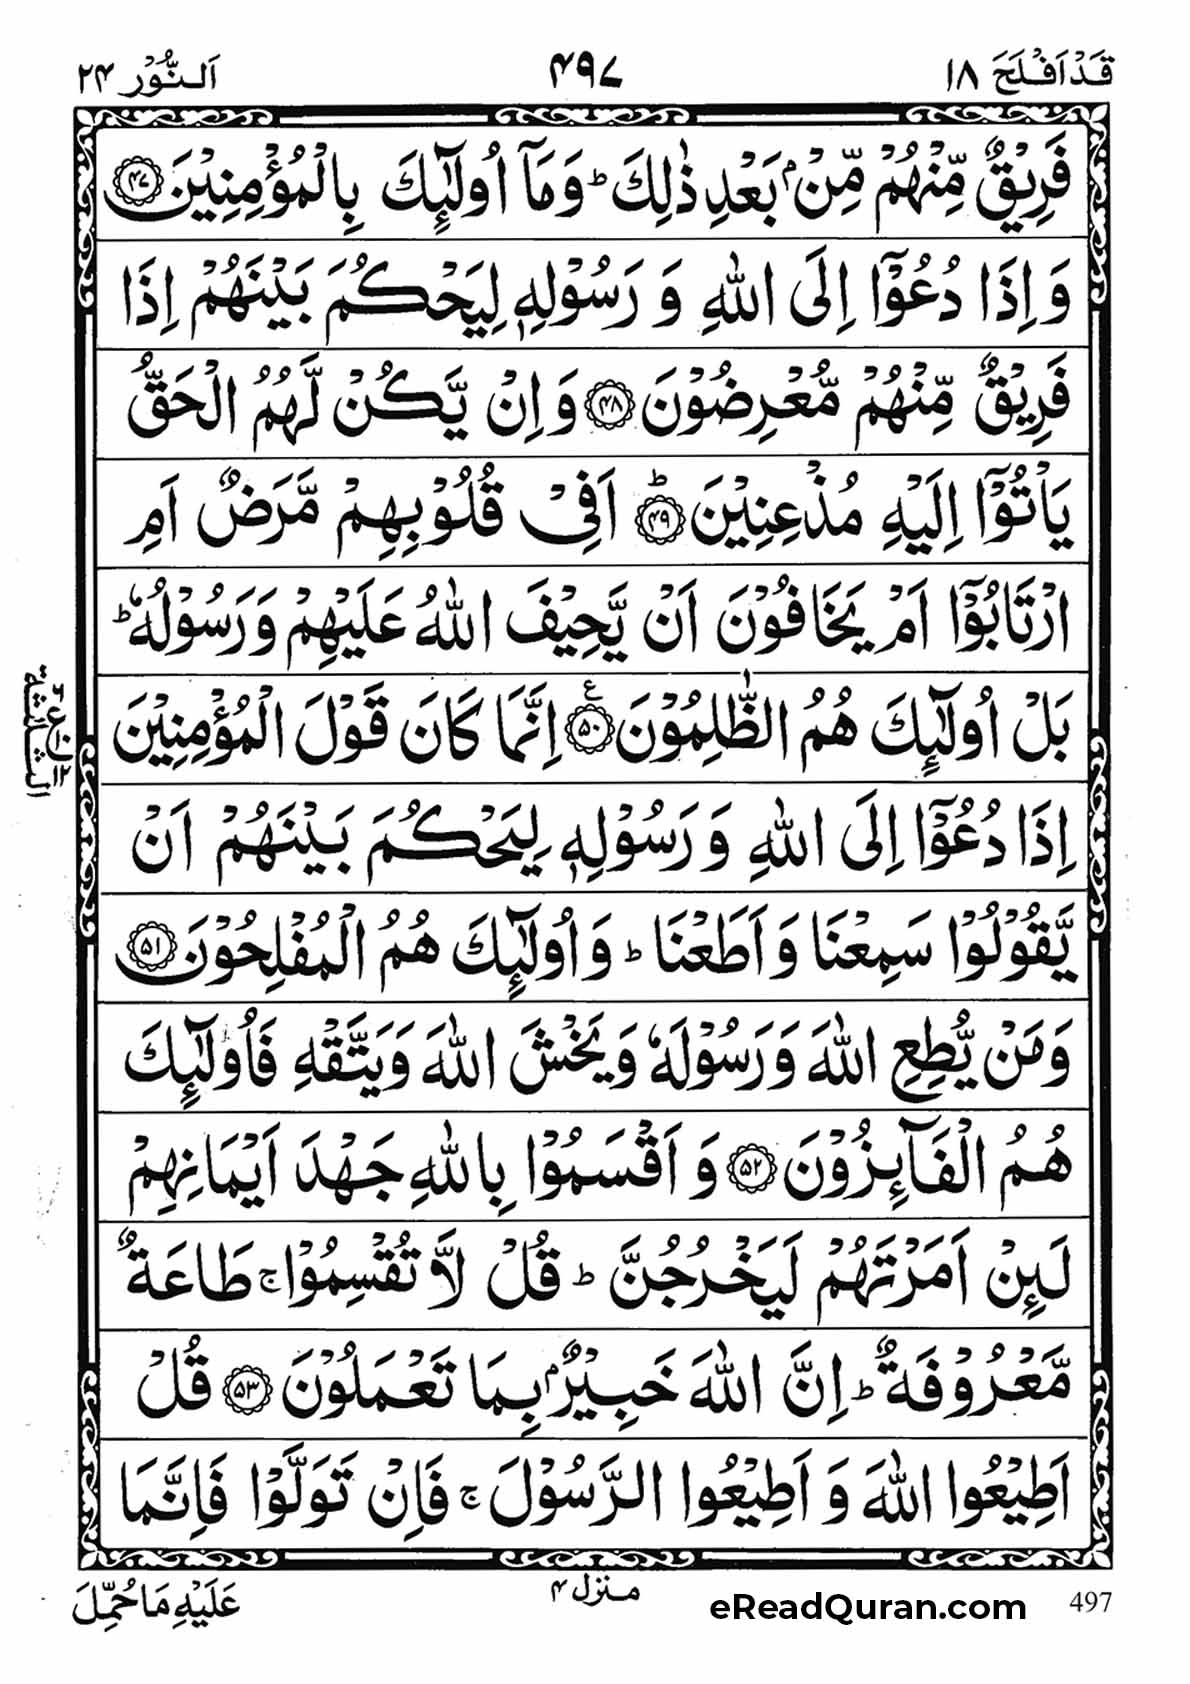 قَدْ اَفْلَحَ ١٨ ۴۹۷ اَلنُّوْر ٢۴
فَرِيْقٌ مِّنْهُمْ مِّنْۢ بَعْدِ ذٰلِكَ ؕ وَمَاۤ اُولٰٓئِكَ بِالْمُؤْمِنِيْنَ ﴿۴۷﴾
وَ اِذَا دُعُوْۤا اِلَى اللّٰهِ وَ رَسُوْلِهٖ لِيَحْكُمَ بَيْنَهُمْ اِذَا
فَرِيْقٌ مِّنْهُمْ مُّعْرِضُوْنَ ﴿۴۸﴾ وَ اِنْ يَّكُنْ لَّهُمُ الْحَقُّ
يَاْتُوْۤا اِلَيْهِ مُذْعِنِيْنَ ﴿۴۹﴾ؕ اَفِيْ قُلُوْبِهِمْ مَّرَضٌ اَمِ
ارْتَابُوْۤا اَمْ يَخَافُوْنَ اَنْ يَّحِيْفَ اللّٰهُ عَلَيْهِمْ وَ رَسُوْلُهٗ ؕ
بَلْ اُولٰٓئِكَ هُمُ الظّٰلِمُوْنَ ﴿۵۰﴾ع اِنَّمَا كَانَ قَوْلَ الْمُؤْمِنِيْنَ
اِذَا دُعُوْۤا اِلَى اللّٰهِ وَ رَسُوْلِهٖ لِيَحْكُمَ بَيْنَهُمْ اَنْ
يَّقُوْلُوْا سَمِعْنَا وَ اَطَعْنَا ؕ وَ اُولٰٓئِكَ هُمُ الْمُفْلِحُوْنَ ﴿۵۱﴾
وَمَنْ يُّطِعِ اللّٰهَ وَ رَسُوْلَهٗ وَ يَخْشَ اللّٰهَ وَ يَتَّقْهِ فَاُولٰٓئِكَ
هُمُ الْفَآئِزُوْنَ ﴿۵۲﴾ وَ اَقْسَمُوْا بِاللّٰهِ جَهْدَ اَيْمَانِهِمْ
لَئِنْ اَمَرْتَهُمْ لَيَخْرُجُنَّ ؕ قُلْ لَّا تُقْسِمُوْا ۚ طَاعَةٌ
مَّعْرُوْفَةٌ ؕ اِنَّ اللّٰهَ خَبِيْرٌۢ بِمَا تَعْمَلُوْنَ ﴿۵۳﴾ قُلْ
اَطِيْعُوا اللّٰهَ وَ اَطِيْعُوا الرَّسُوْلَ ۚ فَاِنْ تَوَلَّوْا فَاِنَّمَا
عَلَيْهِ مَا حُمِّلَ
منزل ۴
eReadQuran.com
497